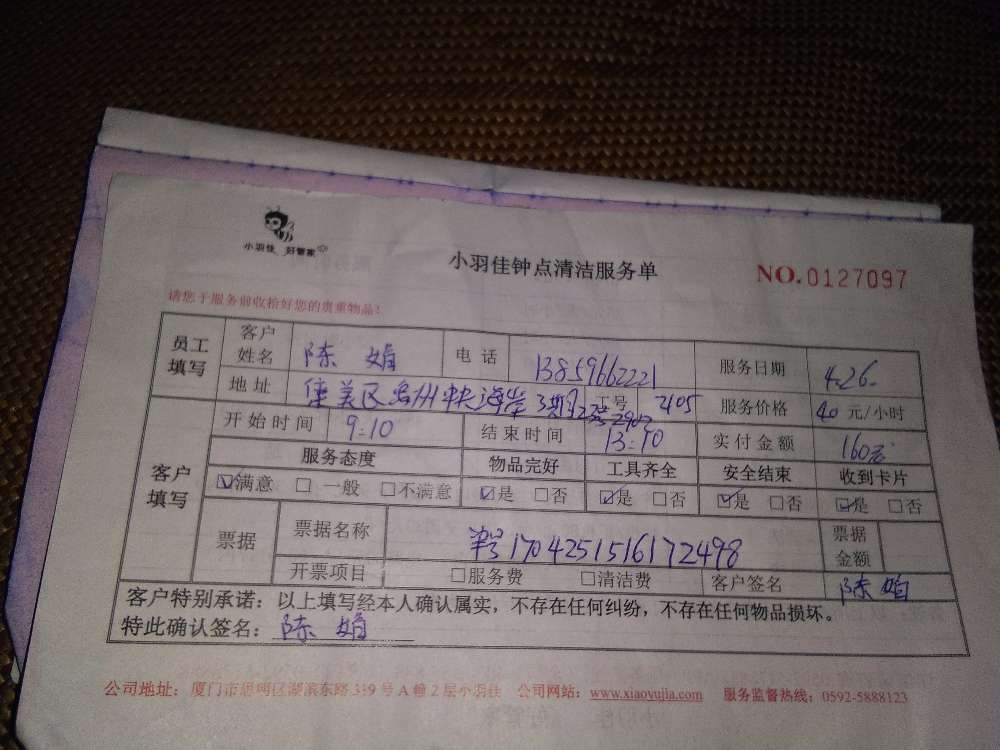 小羽佳 好管家
小羽佳钟点清洁服务单
NO.0127097
请您于服务前收拾好您的贵重物品!
员工填写 客户姓名 陈娟 电话 13859662221 服务日期 4.26.
地址 集美区 州中央海岸3期 工号 2105 服务价格 40 元/小时
客户填写 开始时间 9:10 结束时间 13:10 实付金额 160元
服务态度 物品完好 工具齐全 安全结束 收到卡片
☑满意 □一般 □不满意 ☑是 □否 ☑是 □否 ☑是 □否 ☑是 □否
票据 票据名称 1704251516172498 票据金额
开票项目 □服务费 □清洁费 客户签名 陈娟
客户特别承诺:以上填写经本人确认属实,不存在任何纠纷,不存在任何物品损坏。
特此确认签名:陈娟
公司地址:厦门市思明区湖滨东路319号A幢2层小羽佳 公司网站:www.xiaoyujia.com 服务监督热线:0592-5888123